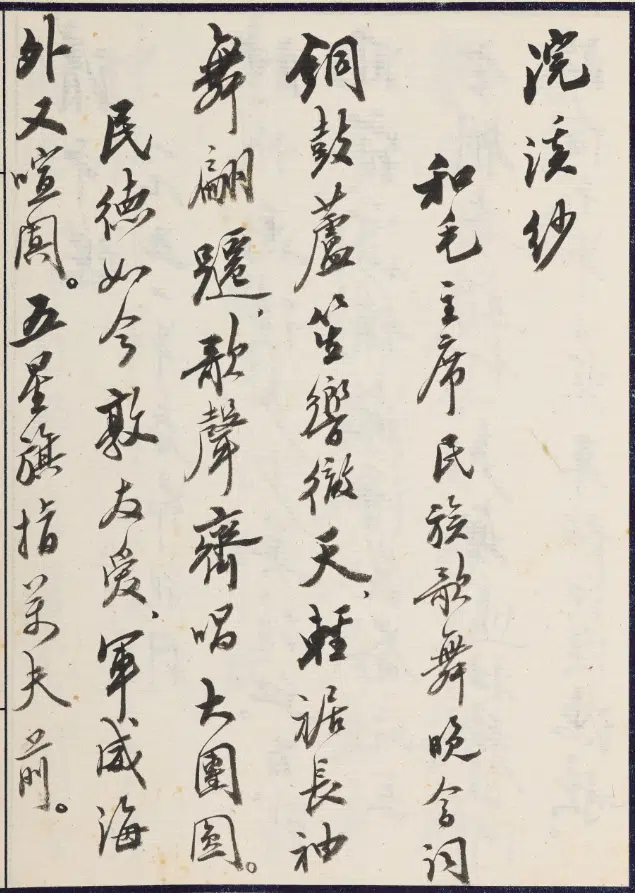 浣溪纱
和毛主席民族歌舞晚会词
銅鼓蘆笙響徹天、輕裾長袖
舞翩躚、歌聲齊唱大團圓。
民德如今敦友愛、軍威海
外又喧闐。五星旗指萬夫前。